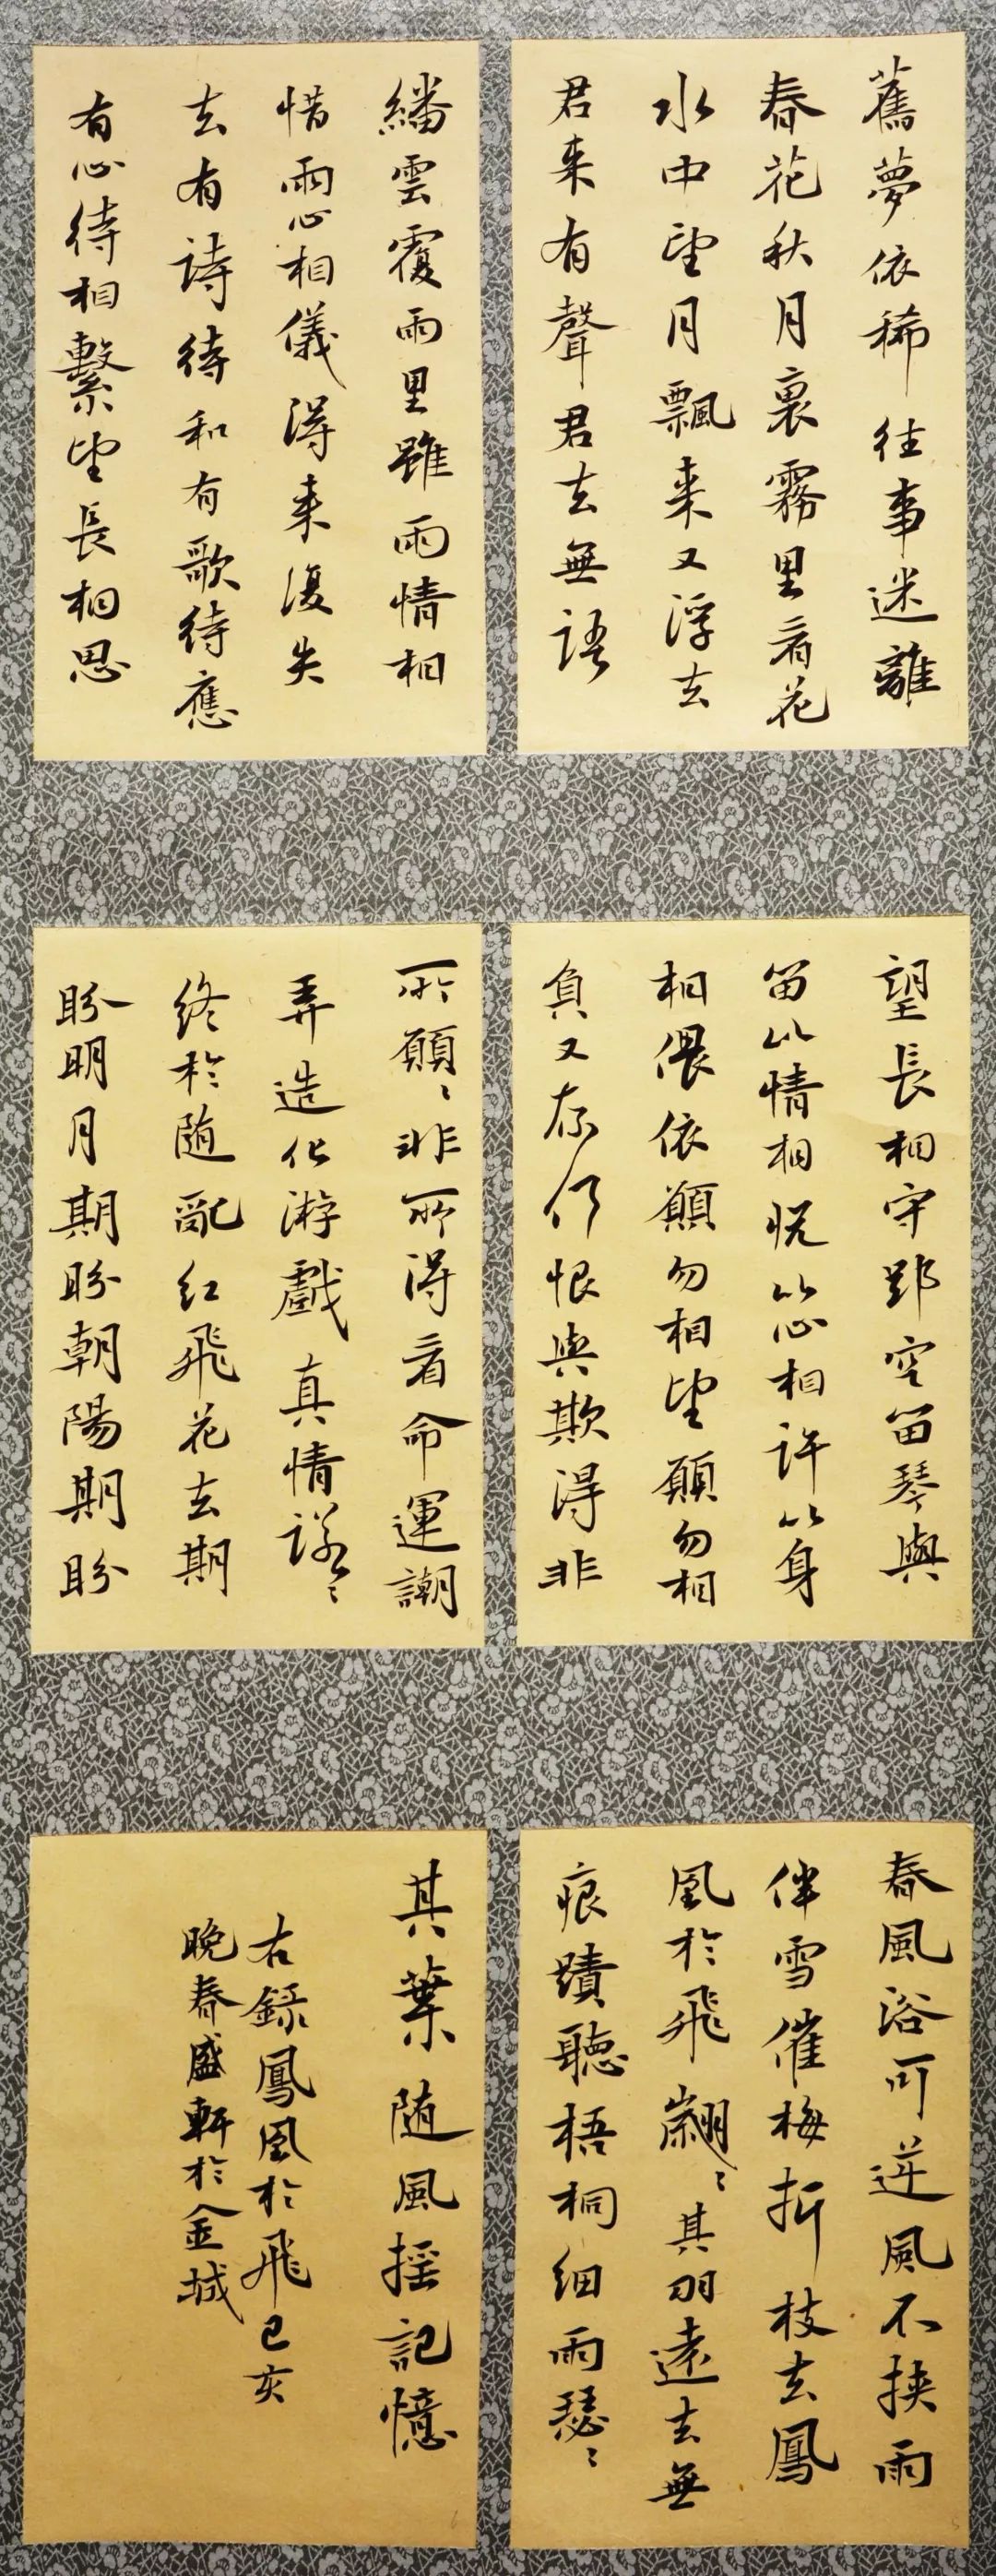 舊夢依稀往事迷離
春花秋月裏霧里看花
水中望月飄来又浮去
君来有聲君去無語
繙雲覆雨里雖雨情相
惜雨心相儀得来復失
去有詩待和有歌待應
有心待相繫望長相思
望長相守郢空留琴與
笛以情相悦以心相許以身
相偎依願勿相望願勿相
負又奈何恨與欺得非
所願〻非所得看命運嘲
弄造化游戲真情諾〻
終於随亂红飛花去期
盼明月期盼朝陽期盼
春風浴可逆風不挟雨
伴雪催梅折枝去鳳
凰於飛翽〻其羽遠去無
痕蹟聽梧桐细雨瑟〻
其葉随風摇記憶
右録鳳凰於飛已亥
晚春盛軒於金城